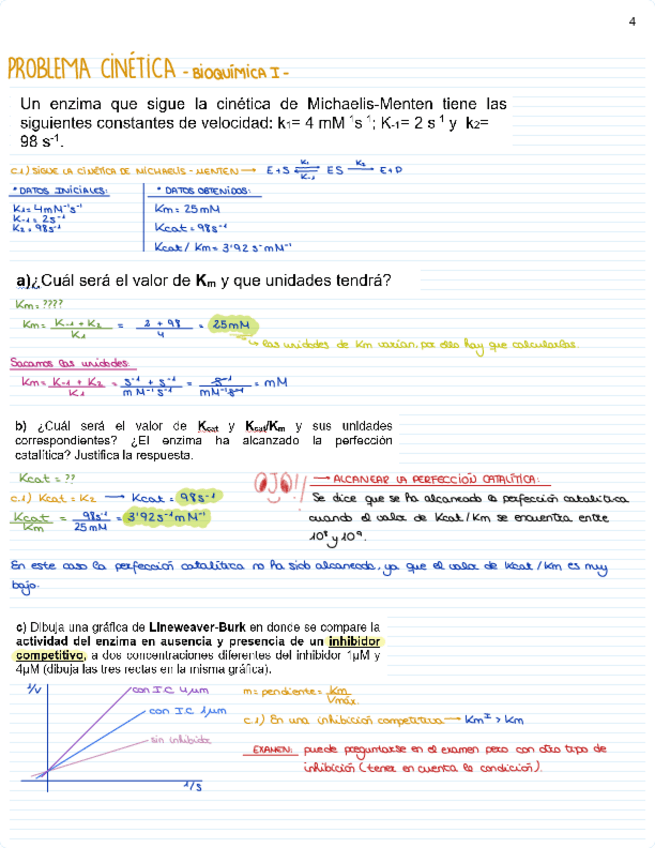 4
PROBLEMA CINÉTICA - BIOQUÍMICA I -
Un enzima que sigue la cinética de Michaelis-Menten tiene las
siguientes constantes de velocidad: k₁= 4 mM⁻¹s⁻¹; K₋₁= 2 s⁻¹ y k₂=
98 s⁻¹.
C.1) SIGUE LA CINÉTICA DE MICHAELIS - MENTEN → E+S ⇌ ES → E+P
K₁ K₋₁ K₂
• DATOS INICIALES:
K₁= 4mM⁻¹s⁻¹
K₋₁= 2s⁻¹
K₂= 98s⁻¹
• DATOS OBTENIDOS:
Km= 25mM
Kcat= 98s⁻¹
Kcat/Km= 3'92 s⁻mM⁻¹
a)¿Cuál será el valor de Kₘ y que unidades tendrá?
Km= ????
Km= K₋₁ + K₂ / K₁ = 2 + 98 / 4 = 25mM
↳ las unidades de Km varían, por ello hay que calcularlas.
Sacamos las unidades:
Km= K₋₁ + K₂ / K₁ = s⁻¹ + s⁻¹ / mM⁻¹s⁻¹ = s⁻¹ / mM⁻¹s⁻¹ = mM
b) ¿Cuál será el valor de Kcat y Kcat/Kₘ y sus unidades
correspondientes? ¿El enzima ha alcanzado la perfección
catalítica? Justifica la respuesta.
Kcat= ??
C.1) Kcat= K₂ → Kcat= 98s⁻¹
Kcat / Km = 98s⁻¹ / 25mM = 3'92s⁻¹mM⁻¹
¡OJO! → ALCANZAR LA PERFECCIÓN CATALÍTICA:
Se dice que se ha alcanzado la perfección catalítica
cuando el valor de Kcat/Km se encuentra entre
10⁸ y 10⁹.
En este caso la perfección catalítica no ha sido alcanzada, ya que el valor de Kcat/Km es muy
bajo.
c) Dibuja una gráfica de Lineweaver-Burk en donde se compare la
actividad del enzima en ausencia y presencia de un inhibidor
competitivo, a dos concentraciones diferentes del inhibidor 1µM y
4µM (dibuja las tres rectas en la misma gráfica).
1/V
con I.C 4µm
con I.C 1µm
sin inhibidor
1/S
m= pendiente= Km / Vmáx.
C.1) En una inhibición competitiva → Kmᴵ > Km
EXAMEN: puede preguntarse en el examen pero con otro tipo de
inhibición (tener en cuenta la condición).